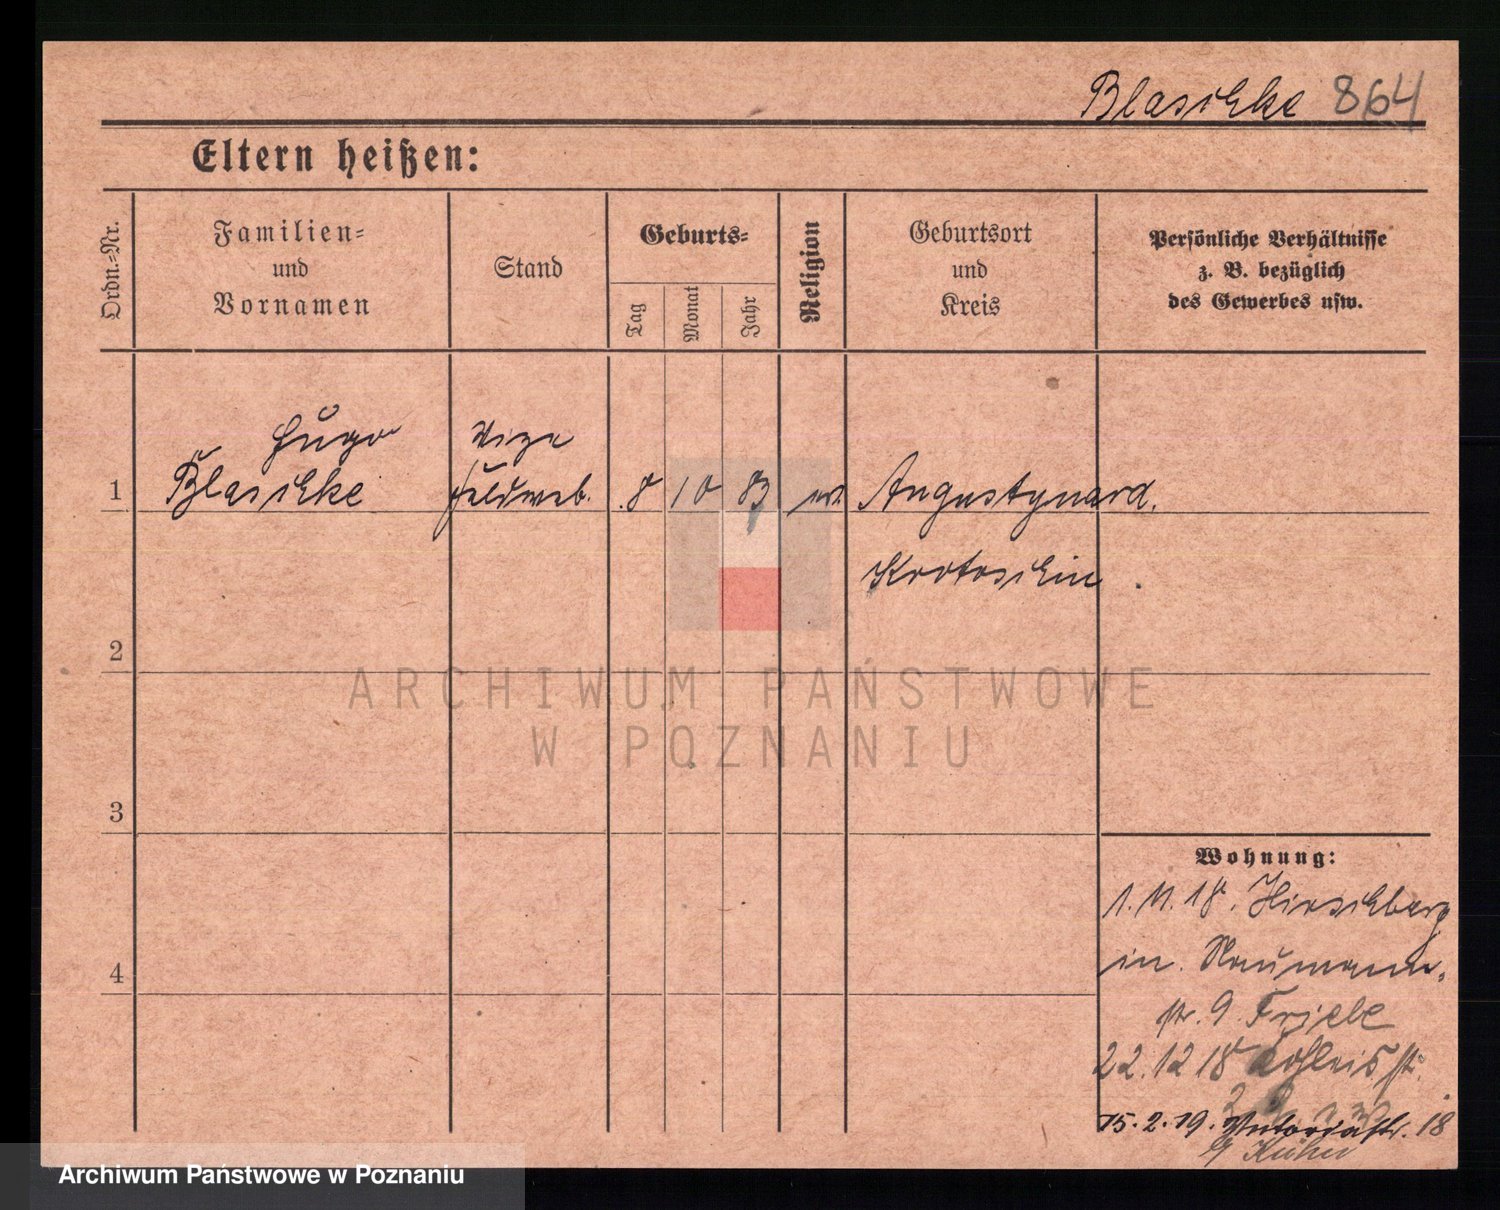 Blaschke 864
Eltern heißen:
Ordn.-Nr.
Familien-
und
Vornamen
Stand
Geburts-
Tag
Monat
Jahr
Religion
Geburtsort
und
Kreis
Persönliche Verhältnisse
z. B. bezüglich
des Gewerbes usw.
Hugo
Vize
1 Blaschke Feldweb. 8 10 83 ev. Augustynard.
Krotoschin
2
ARCHIWUM PAŃSTWOWE
W POZNANIU
3
Wohnung:
1. 11. 18. Hirschberg
in. Naumann-
4
str. 9. Friebe
22. 12 18 str.
15. 2. 19. Viktoriastr. 18
Kuhn
Archiwum Państwowe w Poznaniu